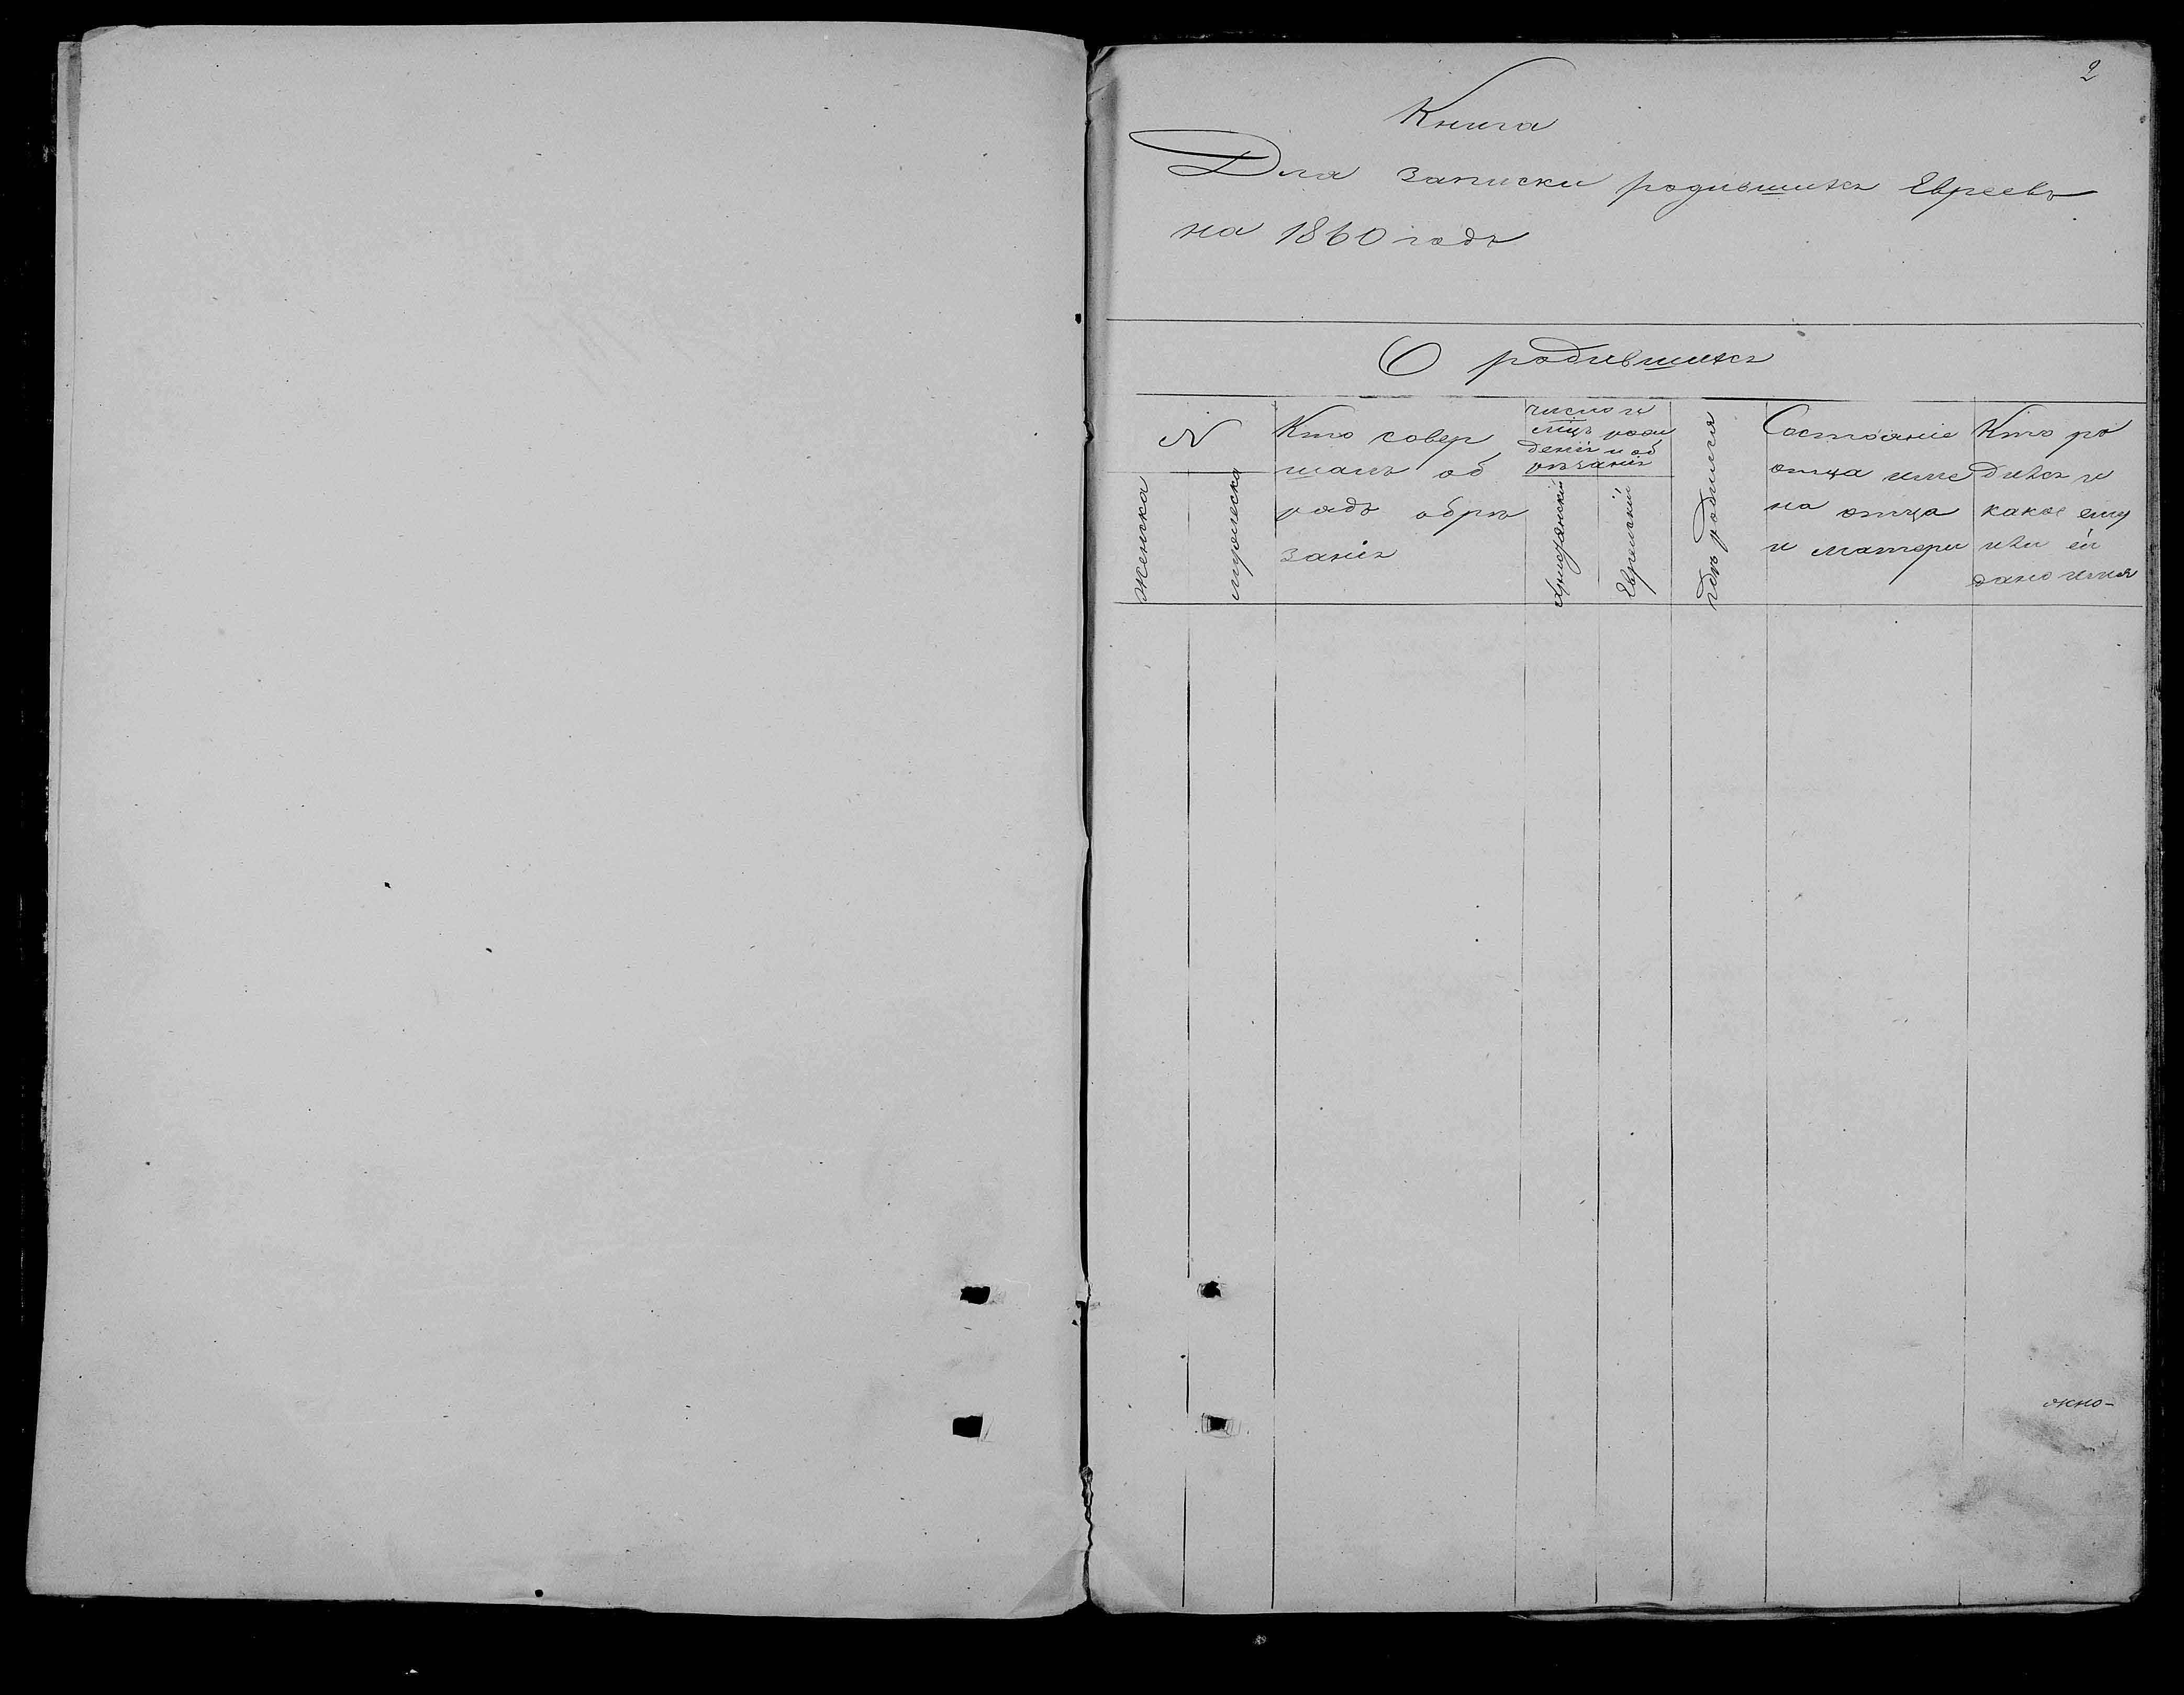 2
Книга
Для записки родившихъ Евреевъ
на 1860 годъ
О родившихъ
N
женска
мужеска
Кто совер
шалъ об
рядъ обрѣ
занія
число и
мцъ рож
денія и об
рѣзанія
Христіянскій
Еврейскій
гдѣ родился
Состояніе
отца име
на отца
и матери
Кто ро
дился и
какое ему
или ей
дано имя
окно-